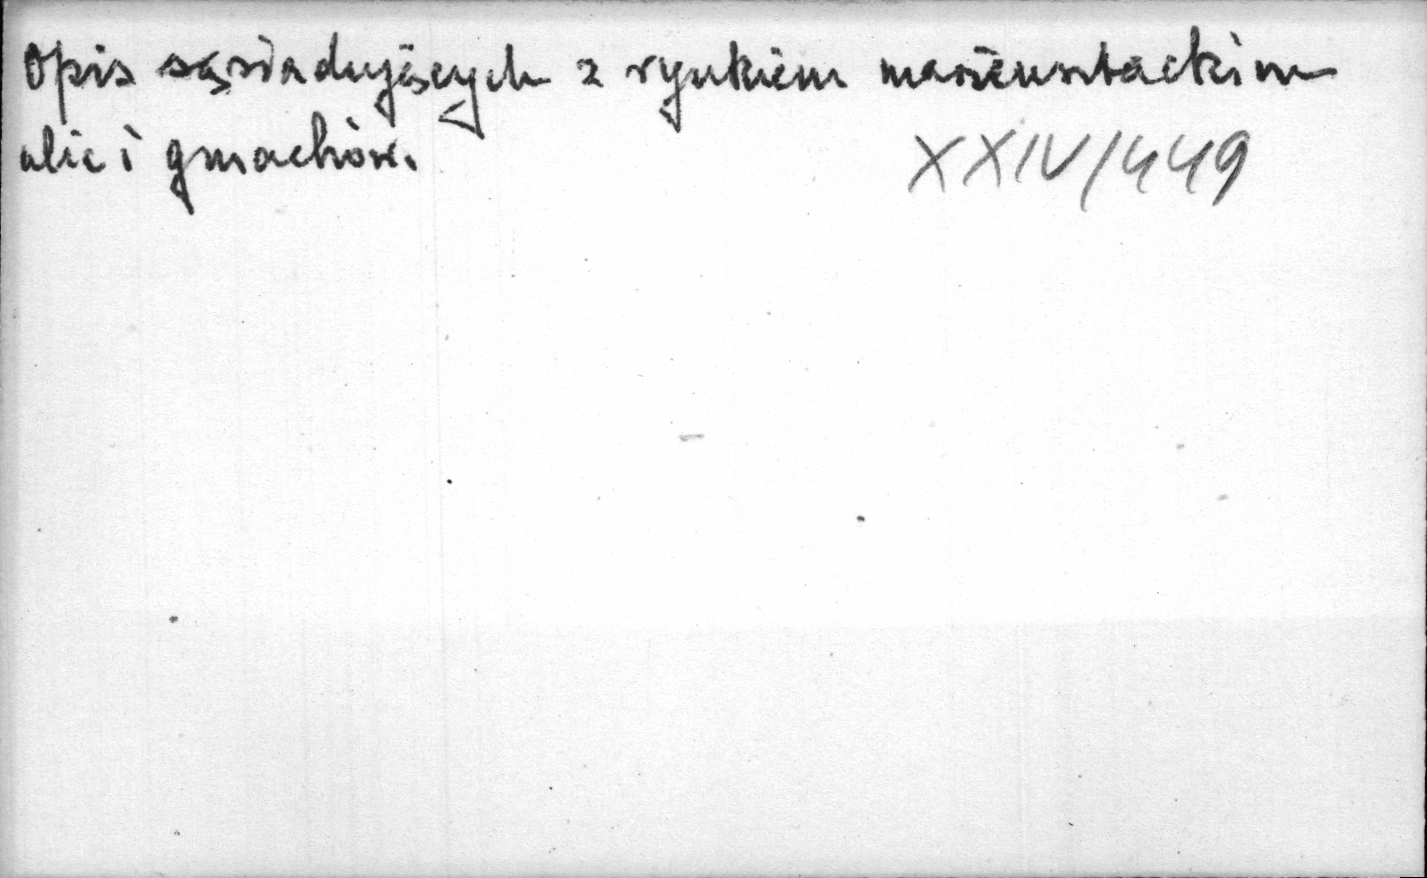 Opis sąsiadujących z rynkiem mariensztackim
ulic i gmachów.
XXIV/449